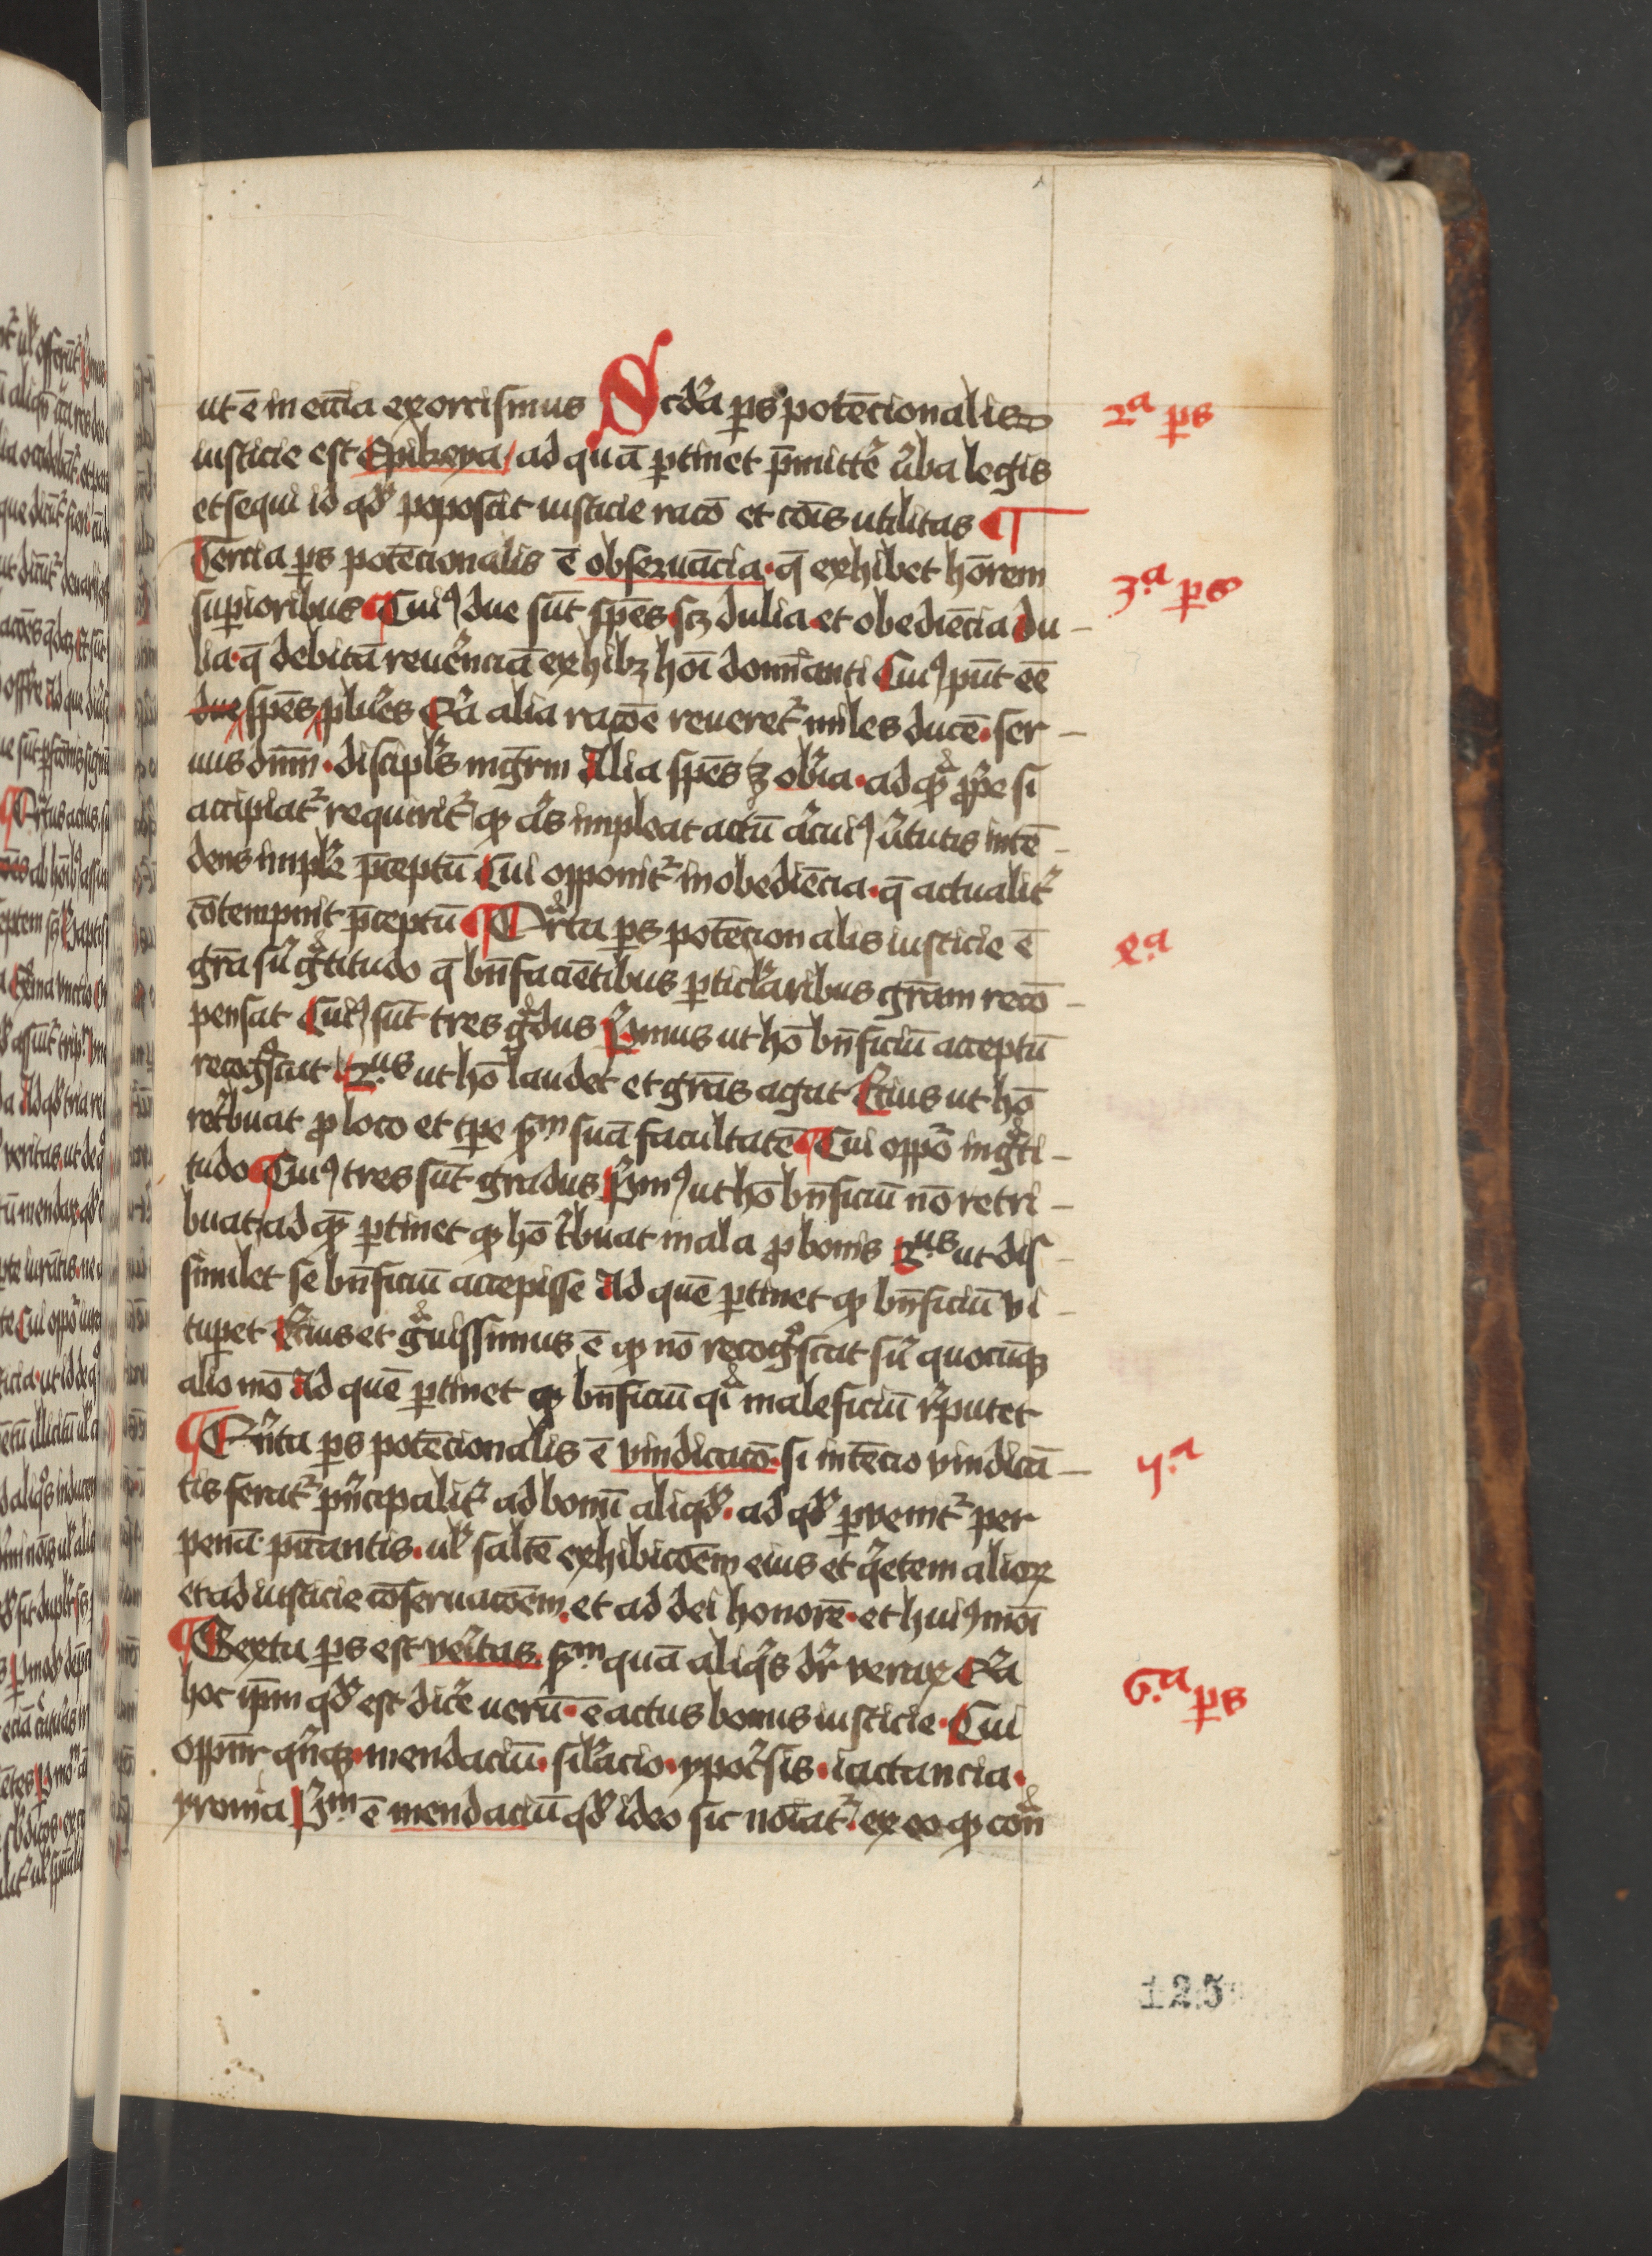 ut ē in eccīa exorcismus Scďa ꝑs potēcionalis
iusticie est Epikeya / ad quā ꝑtinet p̄mitt'e u'ba legis
et sequi id qđ poposcit iusticie racō et cōis utilitas ¶
Tercia ꝑs potēcionalis ē obseruācia · q̄ exhibet hōrem
suꝑioribus ¶ Cuiꝰ due sūt spēs scꝫ dulia et obediēcia du-
lia · q̄ debitā reuer'nciā exhibꝫ hoī dominanti Cuiꝰ pn̄t eē
due spēs plur'es Qr'a alia racōe reueret' miles ducē · ser-
uus dn̄m · discipl's mgr̄m Alia spēs ꝫ ob'ia · ad qͣ ꝓp'e si
accipiat' requirit' ꝙ a's impleat actū a'cuiꝰ u'tutis intē-
dens impl'e p̄ceptū Cui opponit' inobediēcia · q̄ actualit'
cōtempnit p̄ceptū ¶ Qͣrta ꝑs potēcionalis iusticie ē
gr̄a su' gͣtitudo q̄ bn̄facientibus ꝑticl'aribus gr̄am recō-
pensat Cuiꝰ sūt tres gͣdus P'mus ut hō bn̄ficiū acceptū
recogͦscat 2.us ut hō laudet et grās agat Tcius ut hō
ret'buat ꝓ loco et tꝑe s'm suā facultatē ¶ Cui oppō ingͣti-
tudo ¶ Cuiꝰ tres sūt gradus P'mꝰ ut hō bn̄ficiū nō retri-
buat / ad qm̄ ꝑtinet ꝙ hō t'buat mala ꝓ bonis 2.us ut dis-
simulet se bn̄ficiū accepisse Ad quē ꝑtinet ꝙ bn̄ficiū vi-
tuꝑet T'cius et gͣuissimus ē ꝙ nō recogͦscat su' quocūqꝫ
alio mō Ad quē ꝑtinet ꝙ bn̄ficiū qͣi maleficiū r'putet
¶ Qn'ta ꝑs potēcionalis ē vindicacō · si intēcio vindicā-
tis ferat' pn'cipalit' ad bonū aliqđ · ad qđ ꝑuenit' per
penā peccantis · ul' saltē exhibicōem eius et q'etem alioꝝ
et ad iusticie cōseruacōem · et ad dei honorē · et huiꝰmōi
¶ Sexta ꝑs est ver'itas s'm quā aliq's dr̄ verax Qr'a
hoc ip̄m qđ est dic'e uerū · ē actus bonus iusticie · Cui
oppn̄r qn'qꝫ · mendaciū · sil'acio · ypoc'sis · iactancia ·
yronia P'm ē mendaciū qđ ideo sic noīat' · ex eo ꝙ conͣ
2.ª ꝑs
3.ª ꝑs
4.ª
5.ª
6.ª ꝑs
125